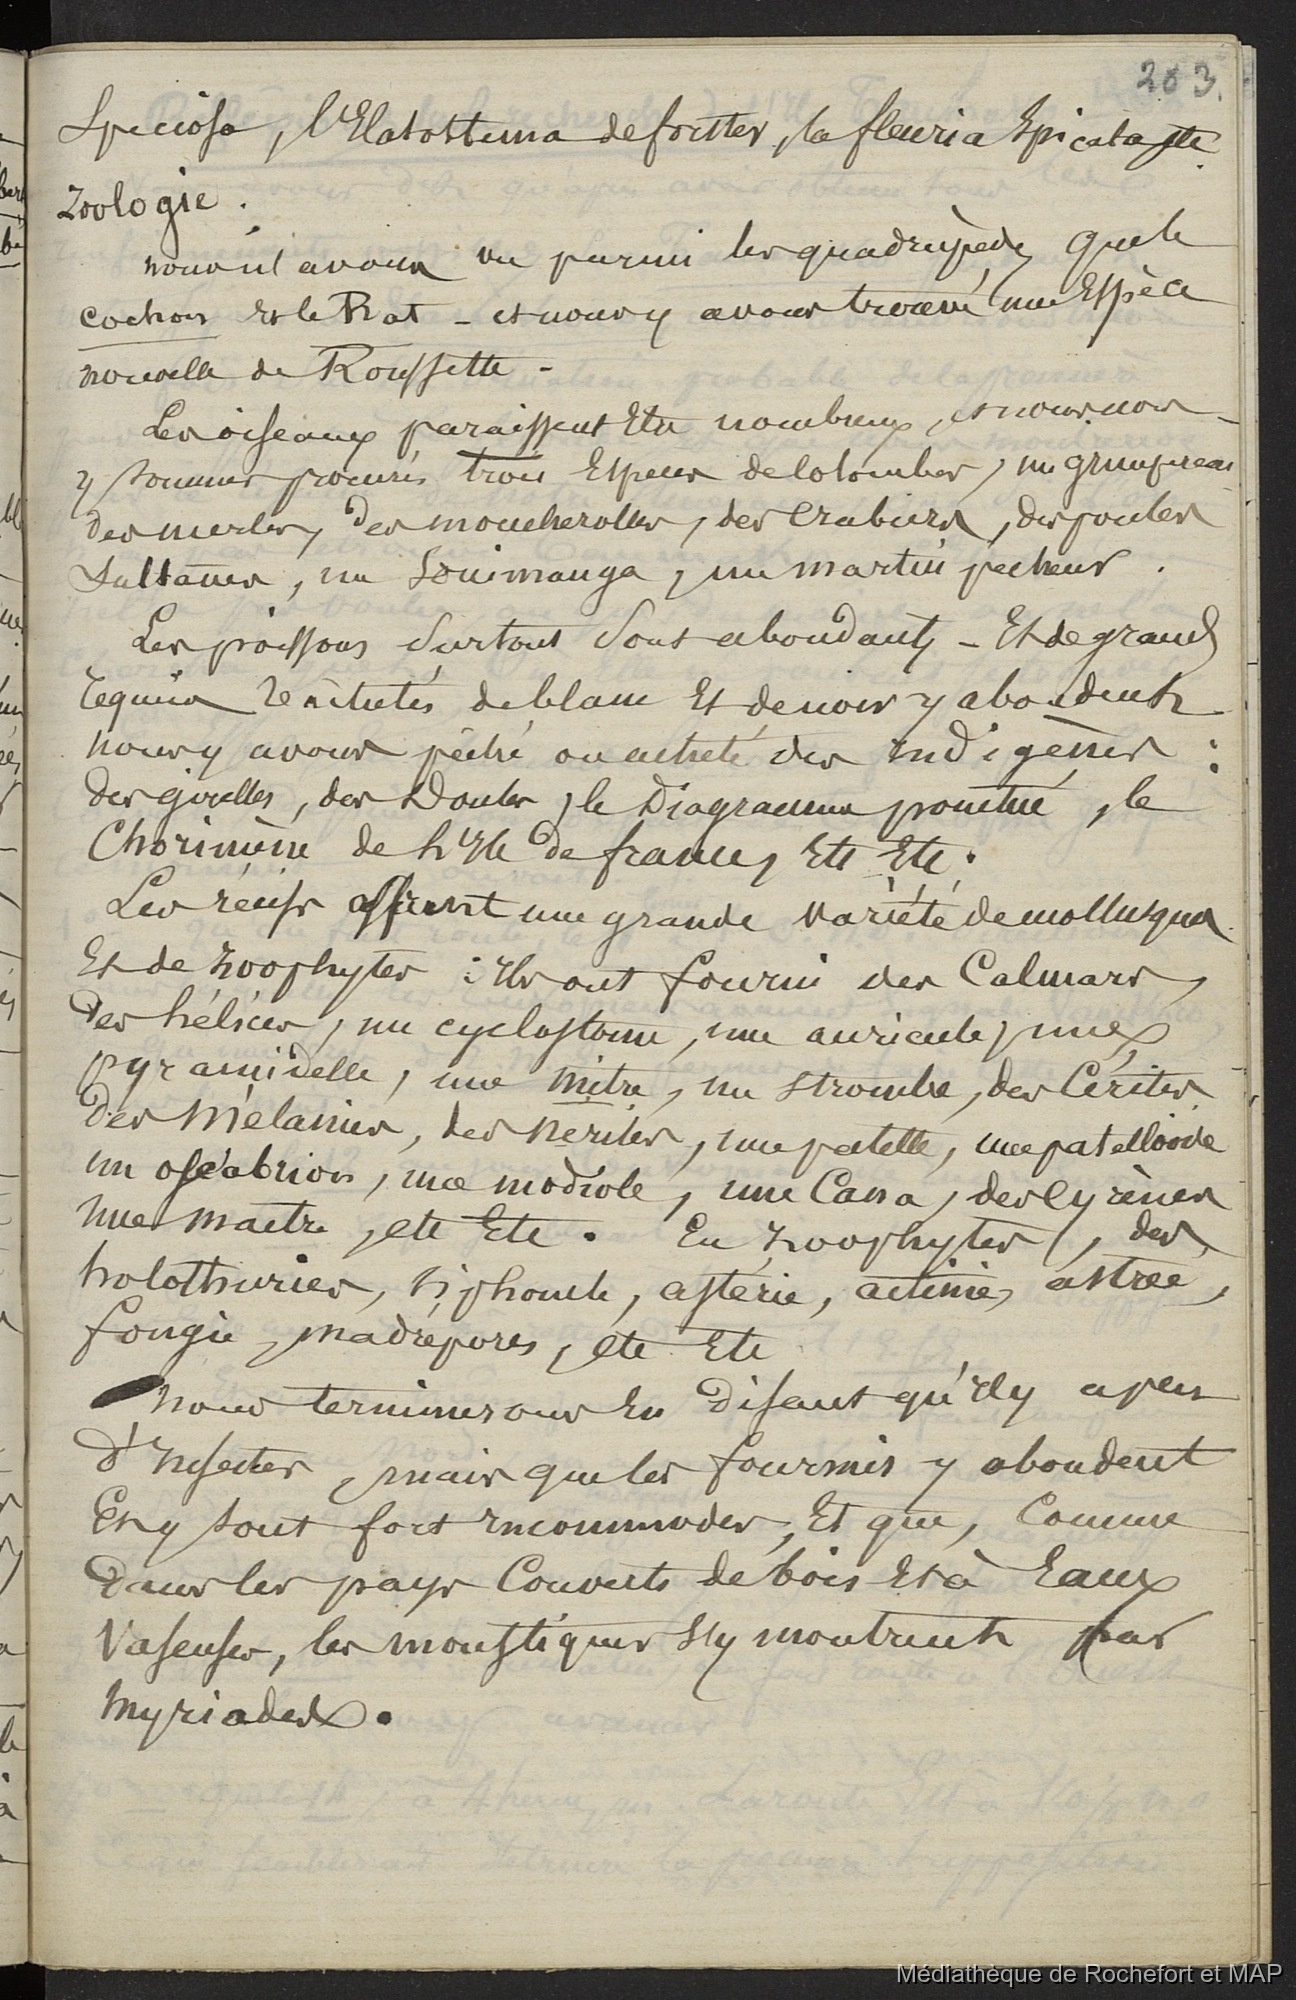 203.
Speciosa, l'Elatostema de forster, la fleuria Spicata etc.
Zoologie.
nous n'avons vu parmi les quadrupèdes que le
cochon et le Rat - et nous y avons trouvé une Espèce
nouvelle de Roussette -
Les oiseaux paraissent Etre nombreux, et nous nous
y sommes procurés trois Especes de Colombes, un grimpereau
des merles, des moucherolles, des Crabiers, des poules
Sultanes, un Souimanga, un martin pecheur.
Les poissons Surtout Sont abondants - Et de grands
requins tachetés de blanc Et de noir y abondent
nous y avons pêché ou acheté des indigènes :
des girelles, des Doules, le Diagramme ponctué, le
Chorinème de l'Ile de france, Etc Etc.
Les récifs offrent une grande variété de mollusques
Et de zoophytes : Ils ont fourni des Calmars,
des hélices, un cyclostome, une auricule, une
pyramidelle, une mitre, un strombe, des Cérites
des Mélanies, des nérites, une patelle, une patelloïde
un oscabrion, une modiole, une Cama, des Cyrènes
une mactre, etc Etc. En zoophytes, des
holothuries, siphoncle, astérie, actinie, astrée,
fongie, madrépores, etc Etc
nous terminerons En disant qu'Il y a peu
d'Insectes, mais que les fourmis y abondent
Et y sont fort incommodes, Et que, Comme
dans les pays Couverts de bois Et à Eaux
Vaseuses, les moustiques s'y montrent par
myriades.
Médiathèque de Rochefort et MAP